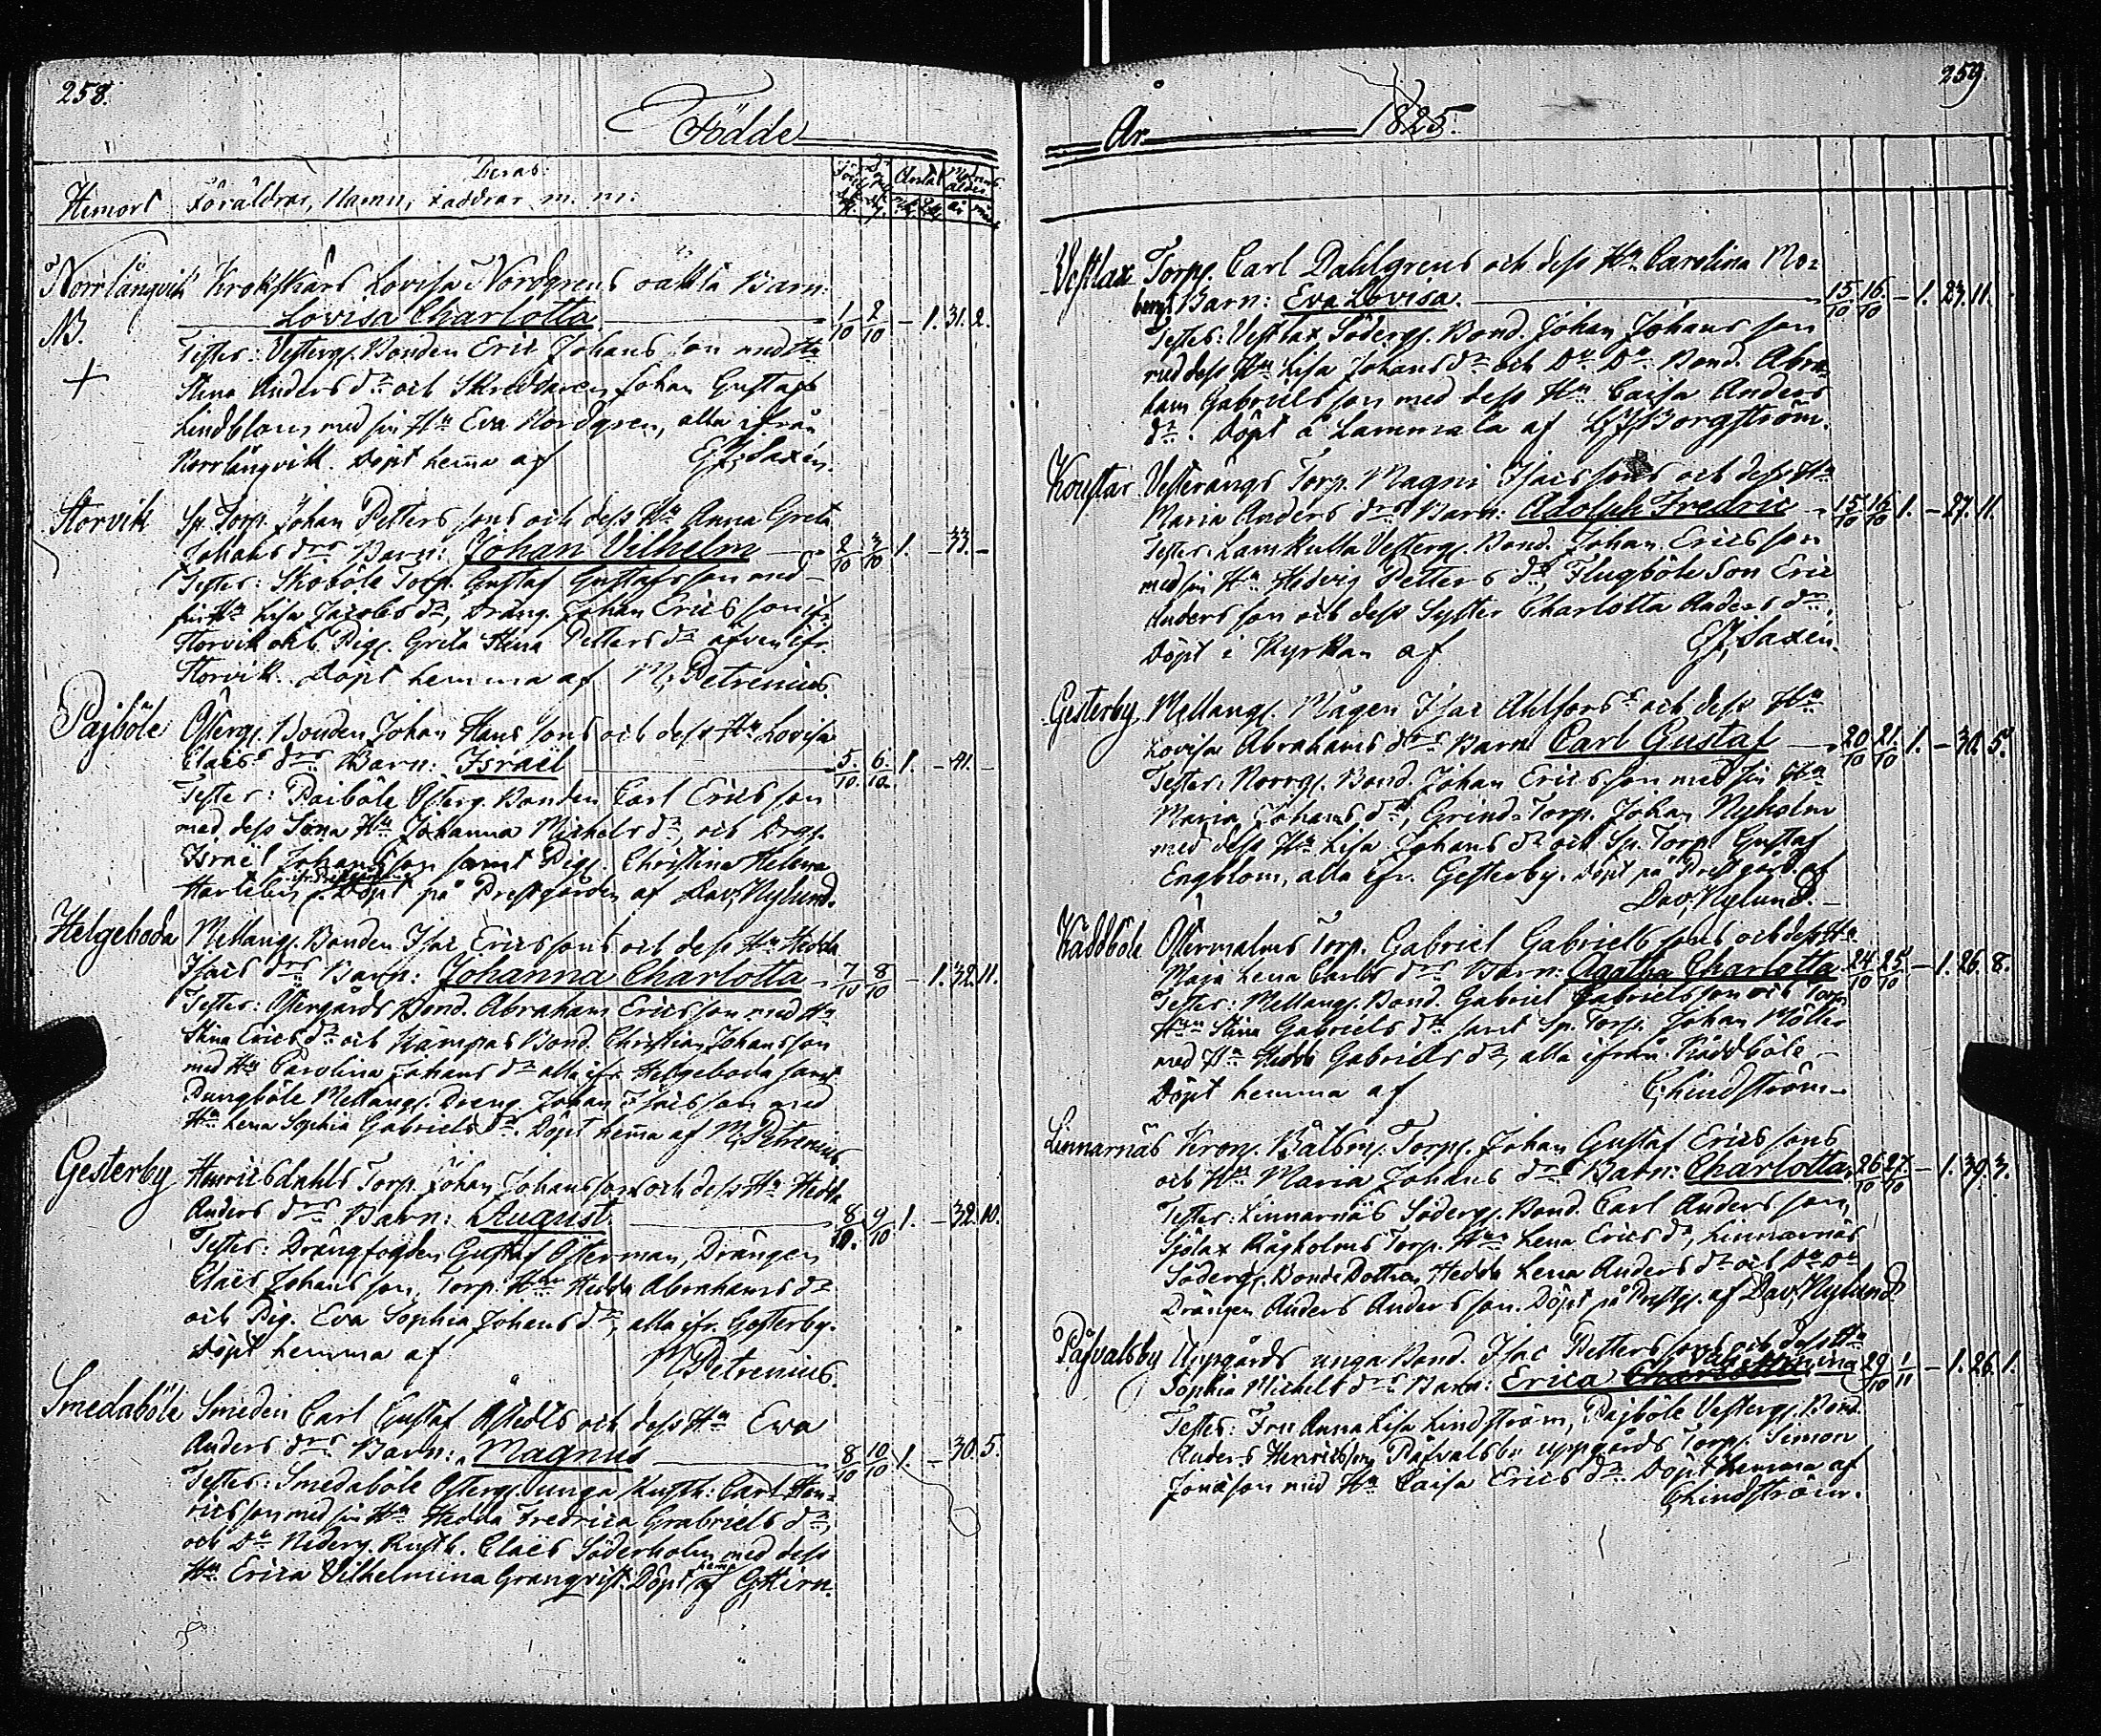 258.
Födde
Deras
Hemort Föräldrar, Namn, Faddrar m. m.
Norrlångvik Krokskärs Lovisa Nordgrens oäkta Barn:
NB. Lovisa Charlotta 1/10 2/10 - 1. 31. 2.
Testes: Vesterg. Bonden Eric Johansson med Hu
Stina Anders dr och Skreddaren Johan Gustaf
Lindblom, med sin Hu Eva Nordgren, alla ifrån
Norrlångvik. Döpt hema af G. Saxén.
Storvik Sp. Torp. Johan Petterssons och dess Hu Anna Greta
Johans drs Barn: Johan Vilhelm 2/10 3/10 1. - 33. -
Testes: Skoböle Torp. Gustaf Gustafsson med
sin Hu Lisa Jacobs dr, Dräng Johan Ericsson ifr.
Storvik och Pig. Greta Stina Petters dr äfven ifr.
Storvik. Döpt hemma af M. Petrenius.
Pajböle Österg. Bonden Johan Hanssons och dess Hu Lovisa
Claes drs Barn: Israël 5./10. 6./10. 1. - 41. -
Testes: Paiböle Österg. Bonden Carl Ericsson
med dess Sona Hu Johanna Michels dr, och Drg.
Israël Johansson samt Pig. Christina Helena
Hartelin, Döpt på Prestgården af Dav. Nylund.
Helgeboda Mellang. Bonden Isac Ericssons och dess Hu Hedda
Isacs drs Barn: Johanna Charlotta 7/10 8/10 - 1. 32. 11.
Testes: Östergårds Bond. Abraham Ericsson med Hu
Stina Erics dr och Kämpas Bond. Christian Johansson
med Hu Carolina Johans dr alla ifr. Helgeboda samt
Dungböle Mellang. Dreng Johan Isacsson med
Hu Lena Sophia Gabriels dr. Döpt hema af M. Petrenius.
Gesterby Henricsdahls Torp. Johan Johanssons och dess Hu Hedda
Anders drs Barn: August. 8/10. 9/10 1. - 32. 10.
Testes: Drängfogden Gustaf Österman, Drängen
Claes Johansson, Torp. Hun Hedda Abrahams dr
och Pig. Eva Sophia Johans dr, alla ifr. Gesterby.
Döpt hemma af M. Petrenius.
Smedaböle Smeden Carl Gustaf Åstedts och dess Hu Eva
Anders drs Barn: Magnus 8/10 10/10 1. - 30. 5.
Testes: Smedaböle Österg. unga Rusth. Carl Hen-
ricsson med sin Hu Hedda Fredrica Gabriels dr
och Do Nederg. Rusth. Claes Söderholm med dess
Hu Erica Vilhelmina Granqvist. Döpt hema af G. Hirn.
259.
År 1825.
Vestlax Torp. Carl Dahlgrens och dess Hu Carolina No-
bergs Barn: Eva Lovisa. 15./10 16./10 - 1. 23. 11.
Testes: Vestlax Söderg. Bond. Johan Johansson
med dess Hu Lisa Johans dr och Do Do Bond. Abra-
ham Gabrielsson med dess Hu Caisa Anders
dr. Döpt å Lammala af Borgström.
Konstar Vesterängs Torp. Magni Isacssons och dess Hu
Maria Anders drs Barn: Adolph Fredric 15/10 16/10 1. - 27. 11.
Testes: Lamkulla Vesterg. Bond. Johan Ericsson
med sin Hu Hedvig Petters dr, Flugböle Son Eric
Andersson och dess Syster Charlotta Anders dr.
Döpt i Kyrkan af G. Saxén.
Gesterby Mellang. Mågen Isac Ahlfors och dess Hu
Lovisa Abrahams drs Barn Carl Gustaf 20/10 21./10 1. - 30. 5.
Testes: Norrg. Bond. Johan Ericsson med sin Hu
Maria Johans dr, Grind-Torp. Johan Nyholm
med dess Hu Lisa Johans dr och Sp. Torp. Gustaf
Engblom, alla ifr. Gesterby. Döpt på Prestgård. af
Dav. Nylund.
Käddböle Östermalms Torp. Gabriel Gabrielssons och dess Hu
Maja Lena Carls drs Barn: Agatha Charlotta 24/10 25/10 - 1. 26. 8.
Testes: Mellang. Bond. Gabriel Gabrielsson och Torp.
Hun Stina Gabriels dr samt Sp. Torp. Johan Möller
med Hu Hedda Gabriels dr, alla ifrån Käddböle
Döpt hemma af C. Lindström.
Linnarnäs Kron. Båtsm. Torp. Johan Gustaf Ericssons
och Hu Maria Johans drs Barn: Charlotta 26/10 27/10 - 1. 39. 3.
Testes: Linnarnäs Söderg. Bond. Carl Andersson,
Sjölax Rågholms Torp. Hun Lena Erics dr, Linnarnäs
Söderg. Bonde Dottren Hedda Lena Anders dr och Do Do
Drängen Anders Andersson. Döpt på Prestg. af Dav. Nylund.
Påfvalsby Uppgårds unga Bond. Isac Petterssons och dess Hu
Sophia Michels drs Barn: Erica Charlotta Vilhelmina 29/10 1/11 - 1. 26. 1.
Testes: Fru Anna Lisa Lindström, Pajböle Vesterg. Bond.
Anders Henricsson, Påfvalsby uppgårds Torp. Simon
Jonasson med Hu Caisa Erics dr. Döpt hemma af
C. Lindström.